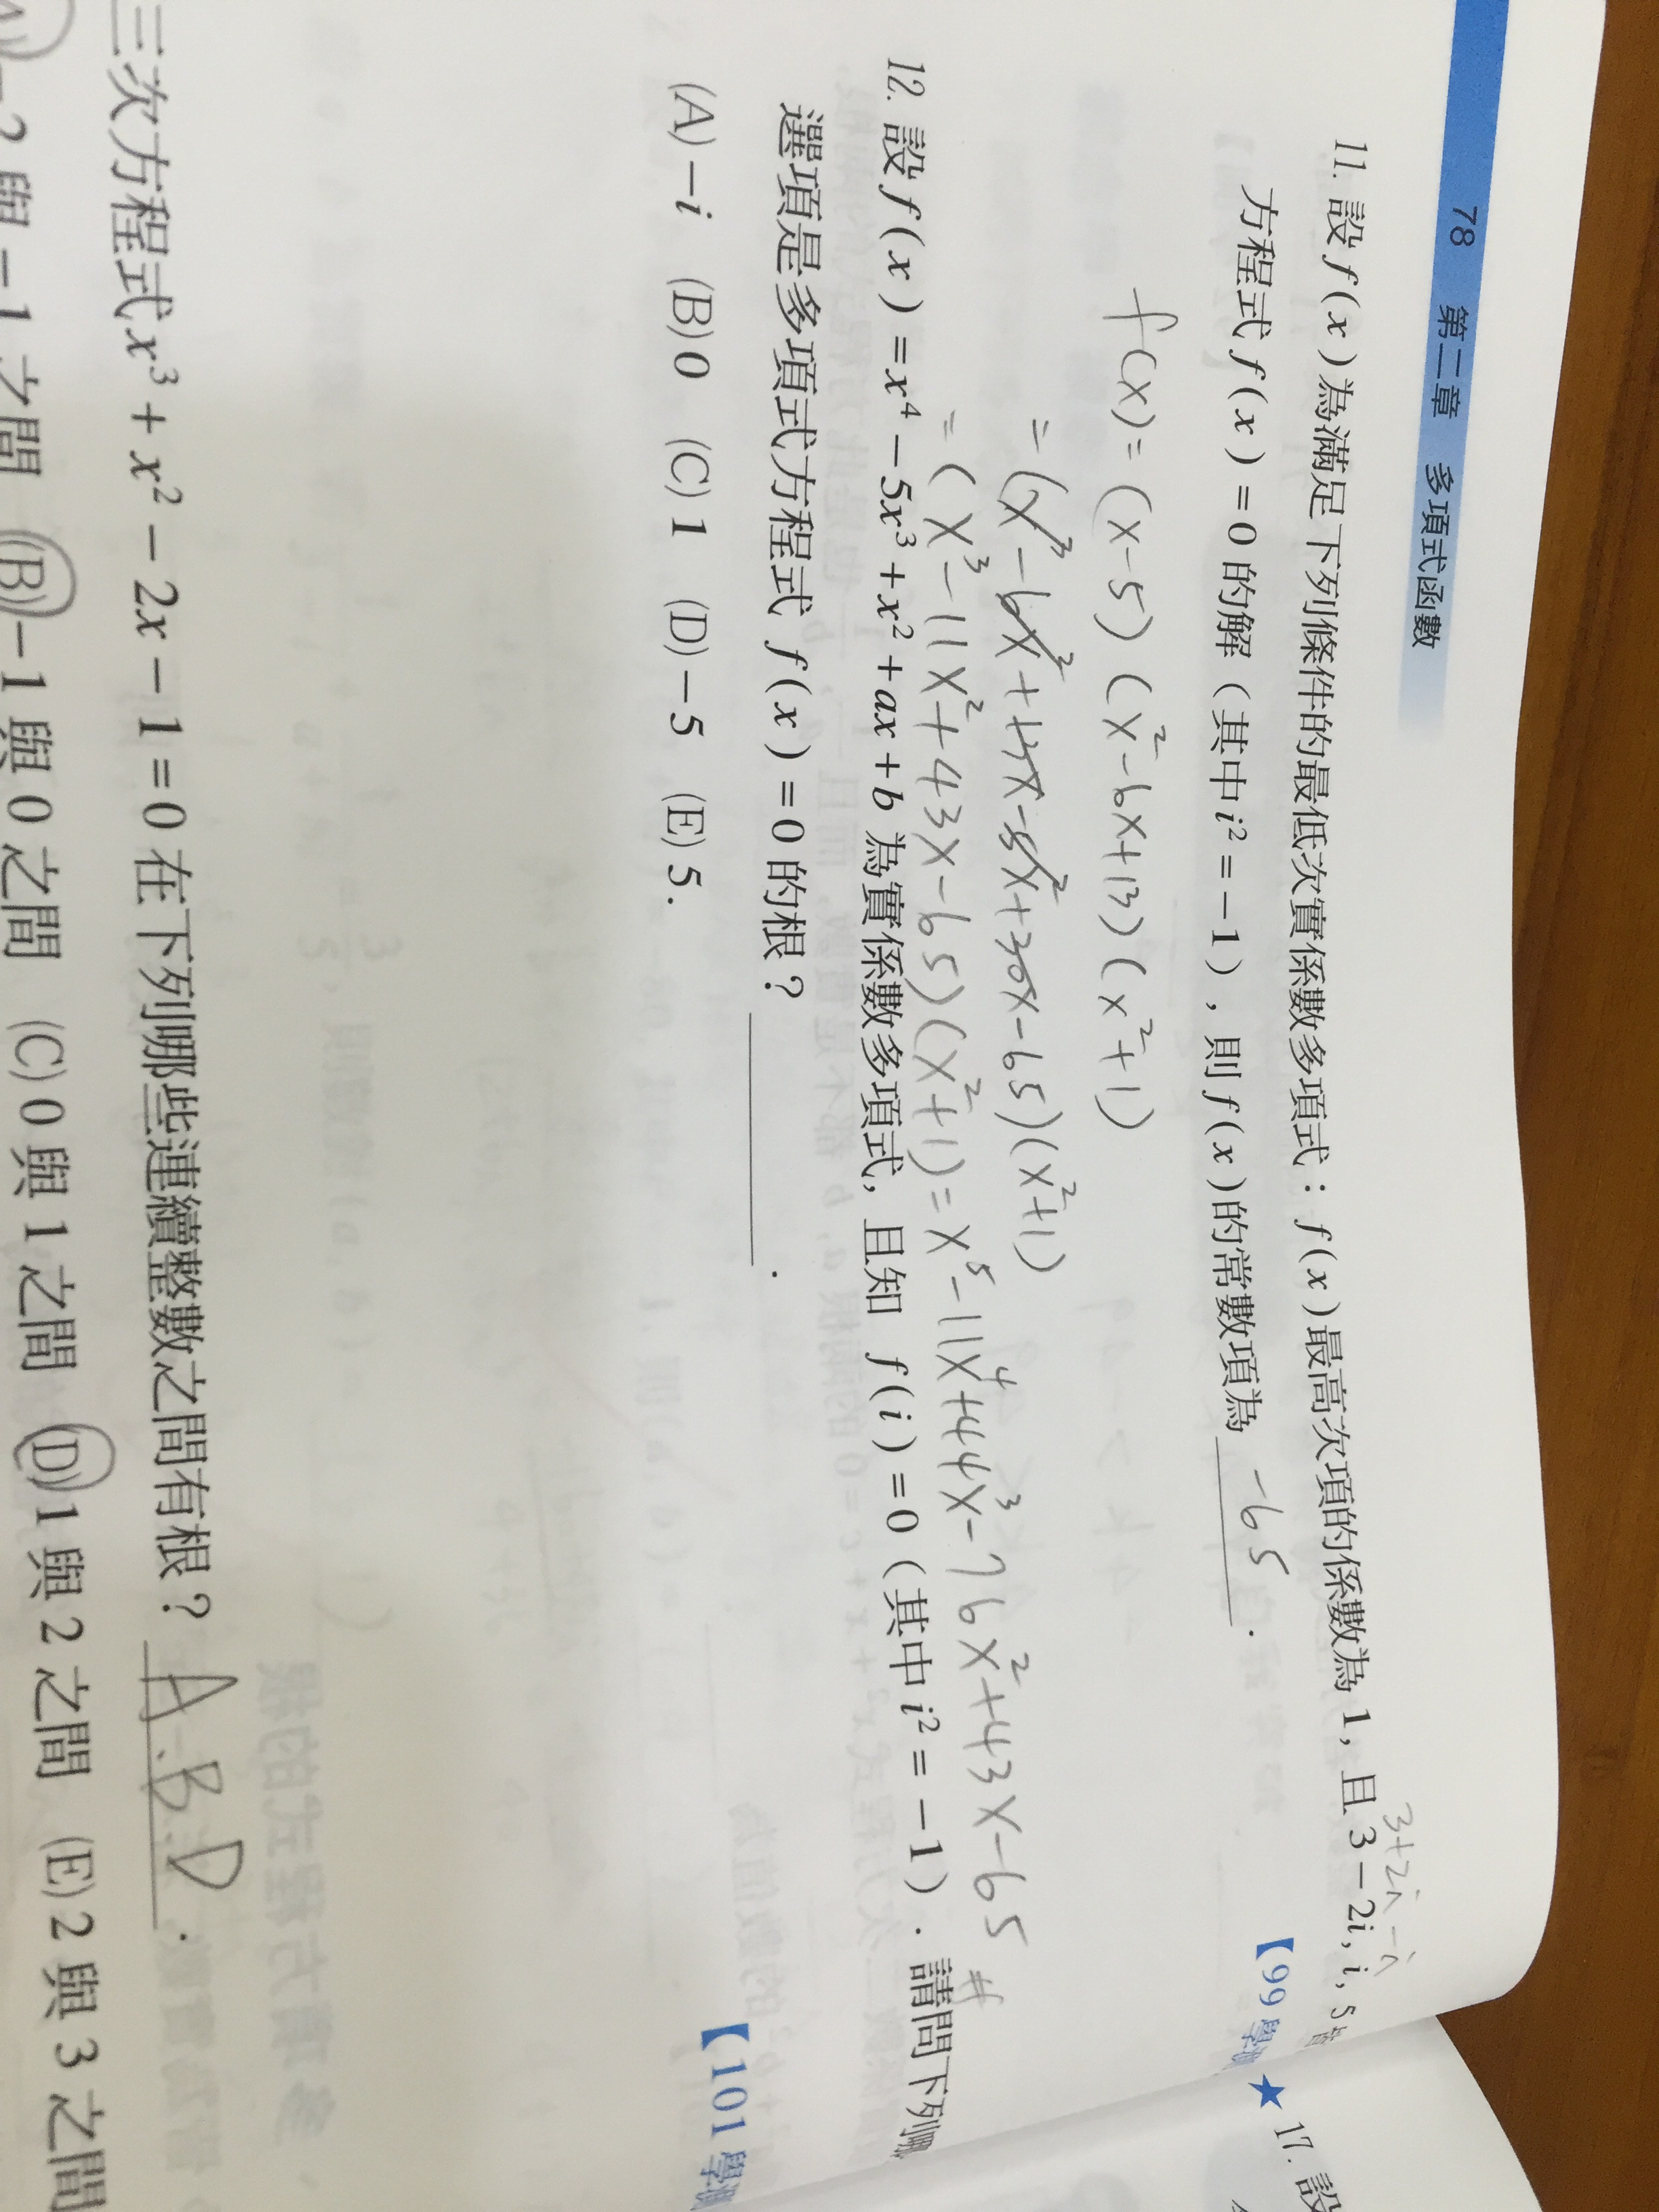 78 第二章 多項式函數
11. 設 f(x) 為滿足下列條件的最低次實係數多項式：f(x) 最高次項的係數為 1，且 3-2i, i, 5 皆
3+2i -i
方程式 f(x)=0 的解（其中 i²=-1），則 f(x) 的常數項為 -65 .
【99學測
f(x)=(x-5)(x²-6x+13)(x²+1)
=(x³-6x²+13x-5x²+30x-65)(x²+1)
=(x³-11x²+43x-65)(x²+1)=x⁵-11x⁴+44x³-76x²+43x-65 #
12. 設 f(x)=x⁴-5x³+x²+ax+b 為實係數多項式，且知 f(i)=0（其中 i²=-1）. 請問下列哪
選項是多項式方程式 f(x)=0 的根？ .
【101學測
(A)-i (B)0 (C)1 (D)-5 (E)5.
三次方程式 x³+x²-2x-1=0 在下列哪些連續整數之間有根？ A.B.D .
(A)-2 與 -1 之間 (B)-1 與 0 之間 (C)0 與 1 之間 (D)1 與 2 之間 (E)2 與 3 之間
★ 17. 設